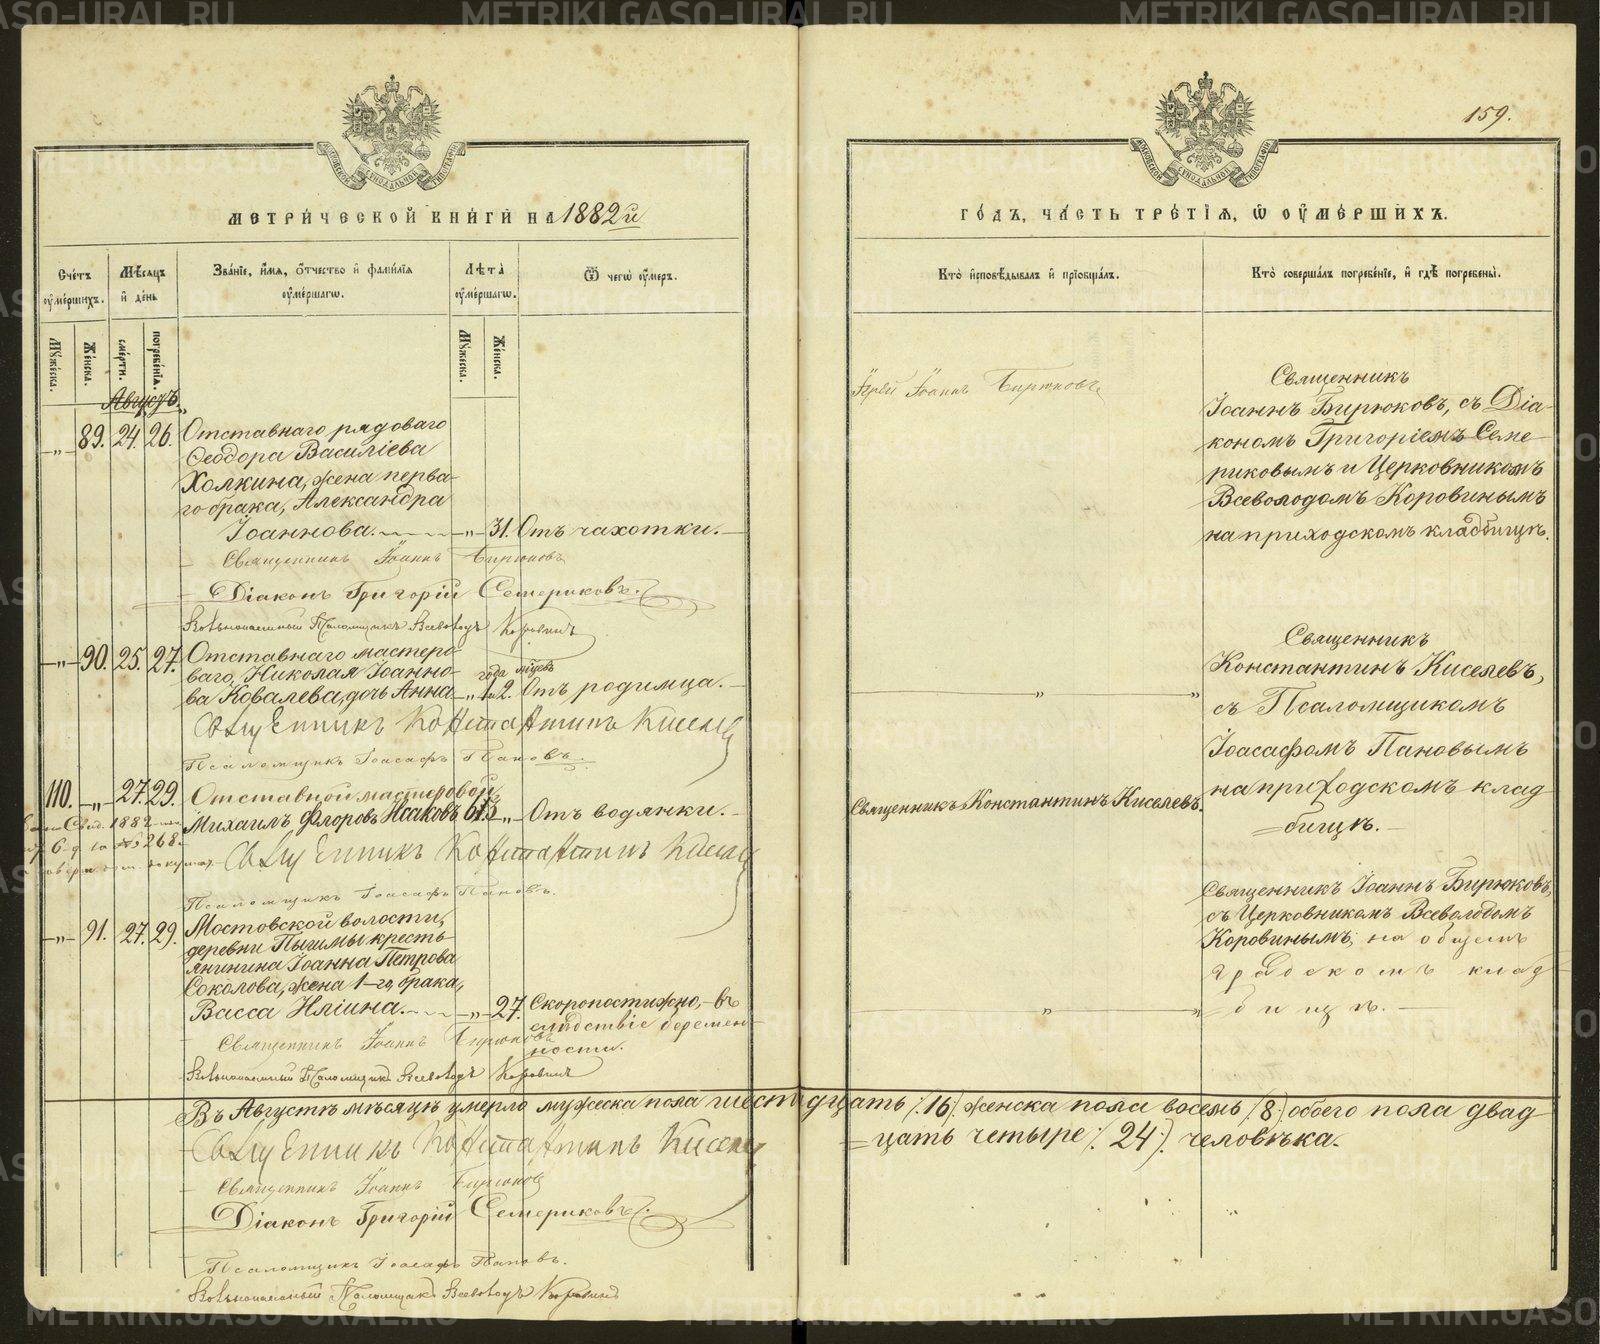 METRIKI.GASO-URAL.RU
159.
МЕТРИЧЕСКОЙ КНИГИ НА 1882й
ГОДЪ, ЧАСТЬ ТРЕТІЯ, Ѿ ОУМЕРШИХЪ.
Счетъ оумершихъ.
Мѣсяцъ и день
Званіе, имя, отчество и фамилія оумершагѡ.
Лѣта оумершагѡ.
Ѿ чегѡ оумеръ.
Кто исповѣдывалъ и пріобщалъ.
Кто совершалъ погребеніе, и гдѣ погребены.
Мужеска.
Женска.
смерти.
погребенія.
Мужеска.
Женска.
Августъ.
„ 89. 24. 26. Отставнаго рядоваго
Ѳеодора Василіева
Холкина, жена перва-
го брака, Александра
Іоаннова. „ 31. Отъ чахотки.
Священникъ Іоаннъ Бирюковъ
Діаконъ Григорій Семериковъ.
Псаломщикъ Всеволодъ Коровинъ
Іерей Іоаннъ Бирюковъ
Священникъ
Іоаннъ Бирюковъ, съ Діа-
кономъ Григоріемъ Семе-
риковымъ и Церковникомъ
Всеволодомъ Коровинымъ
на приходскомъ кладбищѣ.
„ 90. 25. 27. Отставнаго мастеро-
ваго, Николая Іоанно-
ва Ковалева, дочь Анна „
года мцевъ
1 2. Отъ родимца.
Священникъ Константинъ Киселевъ
Псаломщикъ Іоасафъ Пановъ.
„ „
Священникъ
Константинъ Киселевъ,
съ Псаломщикомъ
Іоасафомъ Пановымъ
на приходскомъ клад-
бищѣ.
110. „ 27. 29. Отставной мастеровой
Михаилъ Флоровъ Исаковъ 61. „ Отъ водянки.
1882
268.
Священникъ Константинъ Киселевъ
Псаломщикъ Іоасафъ Пановъ.
Священникъ Константинъ Киселевъ.
„ 91. 27. 29. Мостовской волости,
деревни Пышмы кресть-
янинина Іоанна Петрова
Соколова, жена 1-го брака,
Васса Иліина. „ 27. Скоропостижно, въ
слѣдствіе беремен-
ности.
Священникъ Іоаннъ Бирюковъ
Псаломщикъ Всеволодъ Коровинъ
„ „
Священникъ Іоаннъ Бирюковъ,
съ Церковникомъ Всеволодомъ
Коровинымъ, на общемъ
градскомъ клад-
бищѣ.
Въ Августѣ мѣсяцѣ умерло мужеска пола шестнадцать /.16/. женска пола восемь /.8./ обоего пола двад
цать четыре /.24./. человѣка.
Священникъ Константинъ Киселевъ
Священникъ Іоаннъ Бирюковъ
Діаконъ Григорій Семериковъ.
Псаломщикъ Іоасафъ Пановъ.
Псаломщикъ Всеволодъ Коровинъ